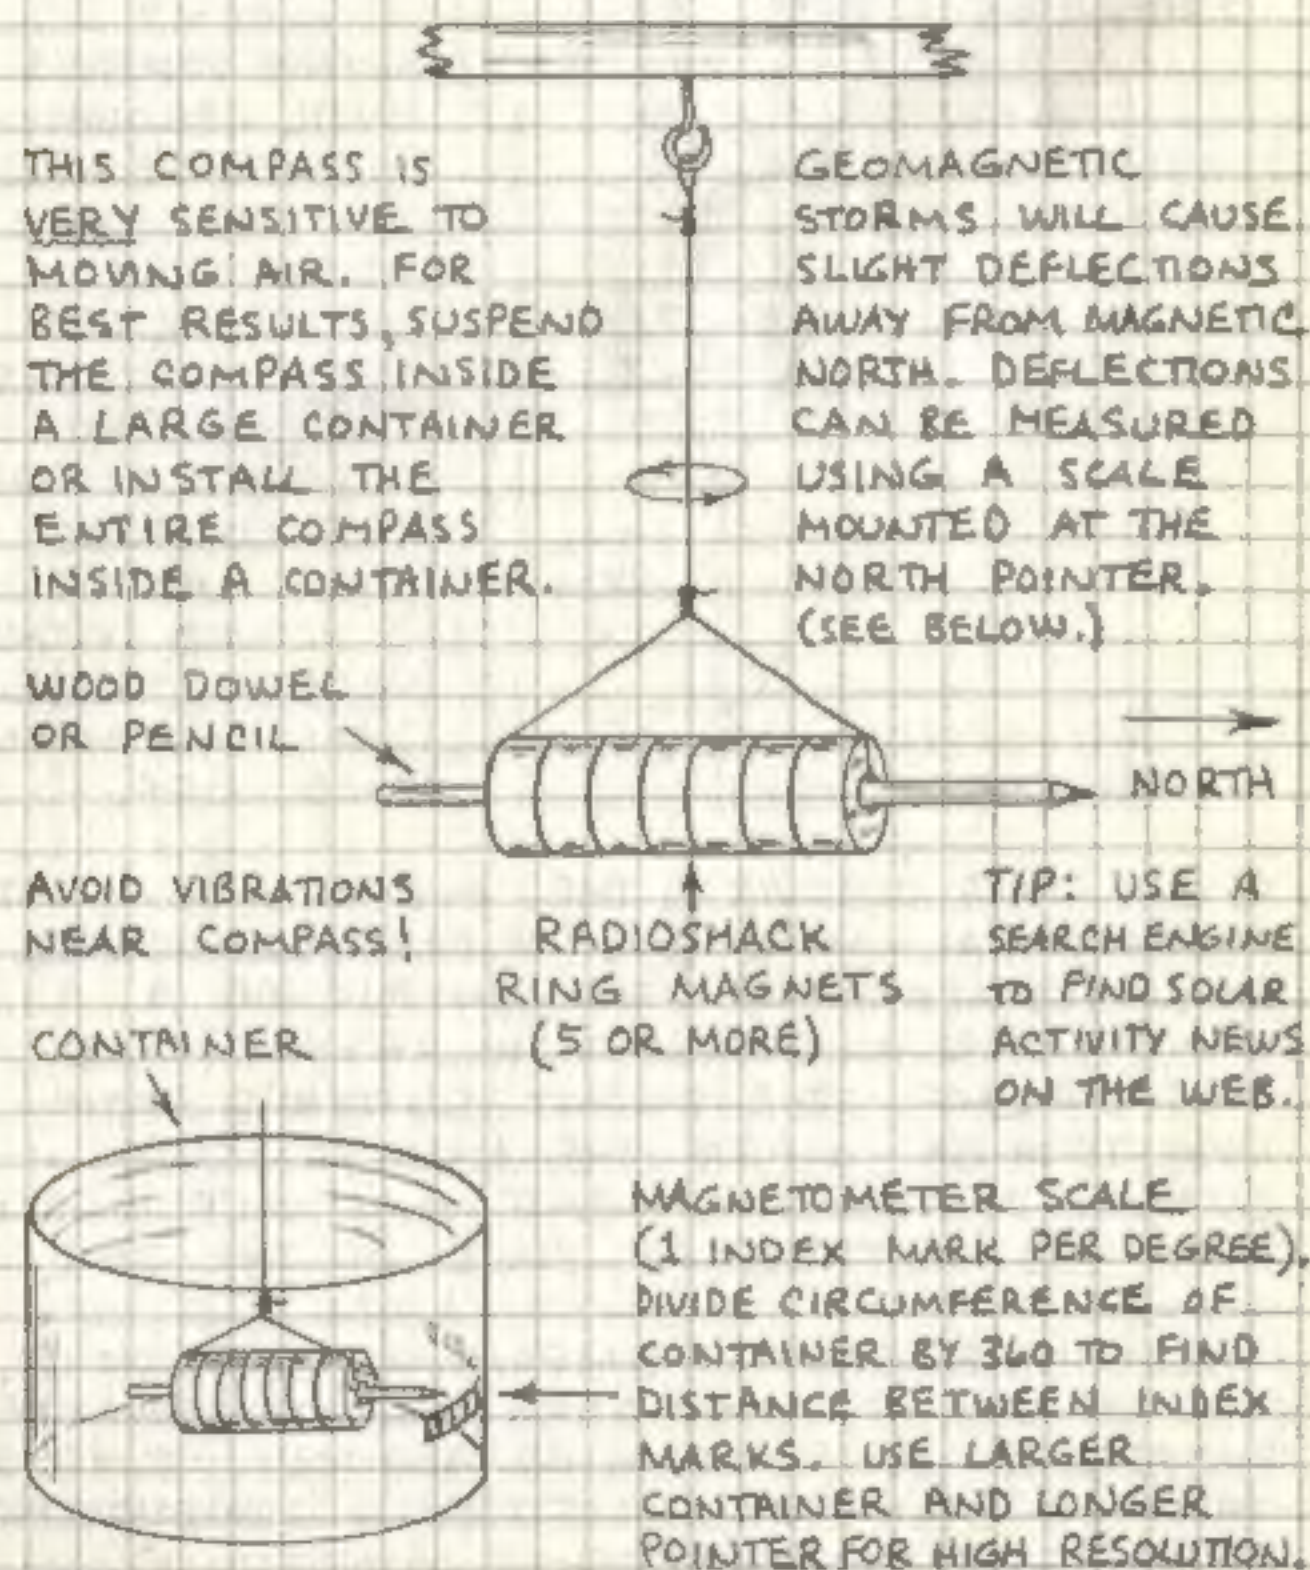 THIS COMPASS IS
VERY SENSITIVE TO
MOVING AIR. FOR
BEST RESULTS, SUSPEND
THE COMPASS INSIDE
A LARGE CONTAINER
OR INSTALL THE
ENTIRE COMPASS
INSIDE A CONTAINER.
GEOMAGNETIC
STORMS WILL CAUSE
SLIGHT DEFLECTIONS
AWAY FROM MAGNETIC
NORTH. DEFLECTIONS
CAN BE MEASURED
USING A SCALE
MOUNTED AT THE
NORTH POINTER.
(SEE BELOW.)
WOOD DOWEL
OR PENCIL
NORTH
AVOID VIBRATIONS
NEAR COMPASS!
RADIOSHACK
RING MAGNETS
(5 OR MORE)
TIP: USE A
SEARCH ENGINE
TO FIND SOLAR
ACTIVITY NEWS
ON THE WEB.
CONTAINER
MAGNETOMETER SCALE
(1 INDEX MARK PER DEGREE).
DIVIDE CIRCUMFERENCE OF
CONTAINER BY 360 TO FIND
DISTANCE BETWEEN INDEX
MARKS. USE LARGER
CONTAINER AND LONGER
POINTER FOR HIGH RESOLUTION.